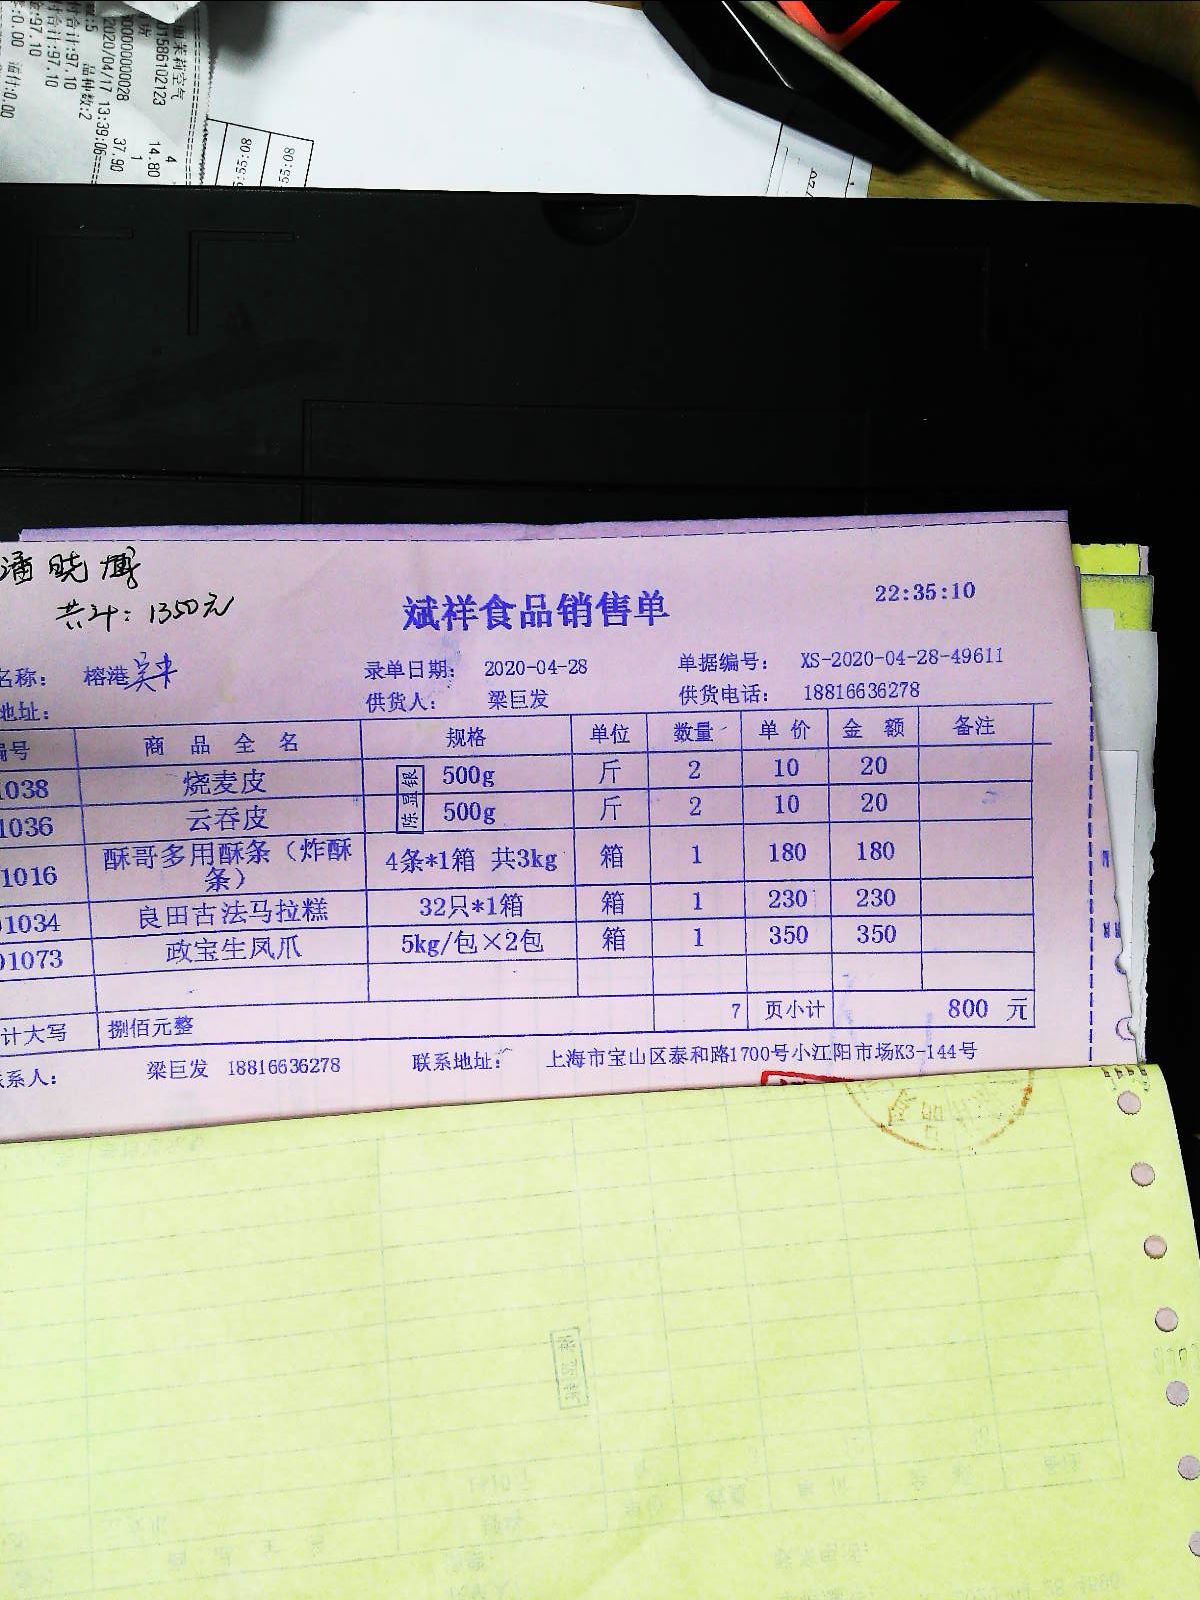 01586102123
14.80
37.90
2020/04/17 13:39:06
品种数:2
付合计:97.10
付合计:97.10
55:08
55:08
共计：1350元
斌祥食品销售单
22:35:10
名称： 榕港 录单日期： 2020-04-28 单据编号： XS-2020-04-28-49611
地址： 供货人： 梁巨发 供货电话： 18816636278
编号 商品全名 规格 单位 数量 单价 金额 备注
1038 烧麦皮 500g 斤 2 10 20
1036 云吞皮 500g 斤 2 10 20
陈显银
1016 酥哥多用酥条（炸酥条） 4条*1箱 共3kg 箱 1 180 180
01034 良田古法马拉糕 32只*1箱 箱 1 230 230
01073 政宝生凤爪 5kg/包×2包 箱 1 350 350
计大写 捌佰元整 7 页小计 800 元
联系人： 梁巨发 18816636278 联系地址： 上海市宝山区泰和路1700号小江阳市场K3-144号